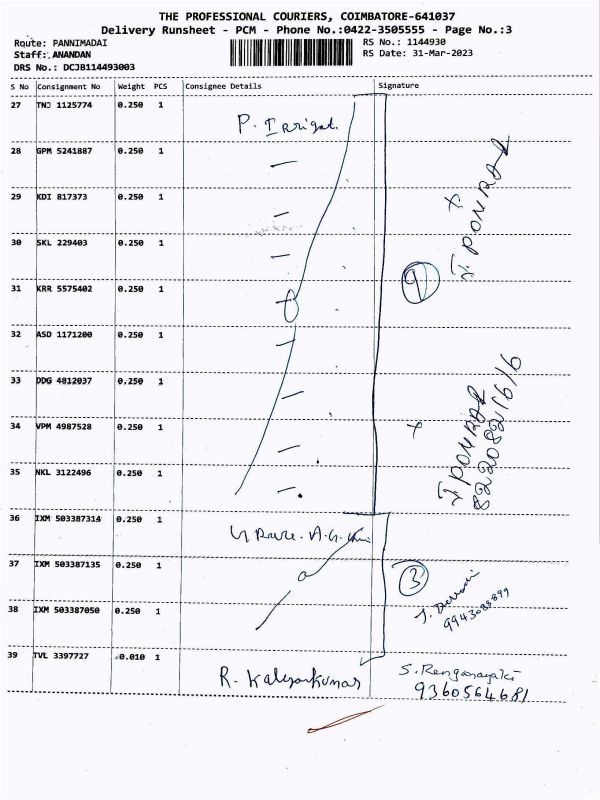 THE PROFESSIONAL COURIERS, COIMBATORE-641037
Delivery Runsheet - PCM - Phone No.:0422-3505555 - Page No.:3
Route: PANNIMADAI
RS No.: 1144930
Staff: ANANDAN
RS Date: 31-Mar-2023
DRS No.: DCJB114493003
S No Consignment No Weight PCS Consignee Details Signature
27 TNJ 1125774 0.250 1
P. Irrigat.
28 GPM 5241887 0.250 1
29 KDI 817373 0.250 1
30 SKL 229403 0.250 1
31 KRR 5575402 0.250 1
9
I. PONRAJ
32 ASD 1171200 0.250 1
33 DDG 4812037 0.250 1
34 VPM 4987528 0.250 1
35 NKL 3122496 0.250 1
I PONRAJ
8220821616
36 IXM 503387314 0.250 1
37 IXM 503387135 0.250 1
3
38 IXM 503387050 0.250 1
9943088899
39 TVL 3397727 0.010 1
R. Kalyankumar
S. Renganayaki
9360564681